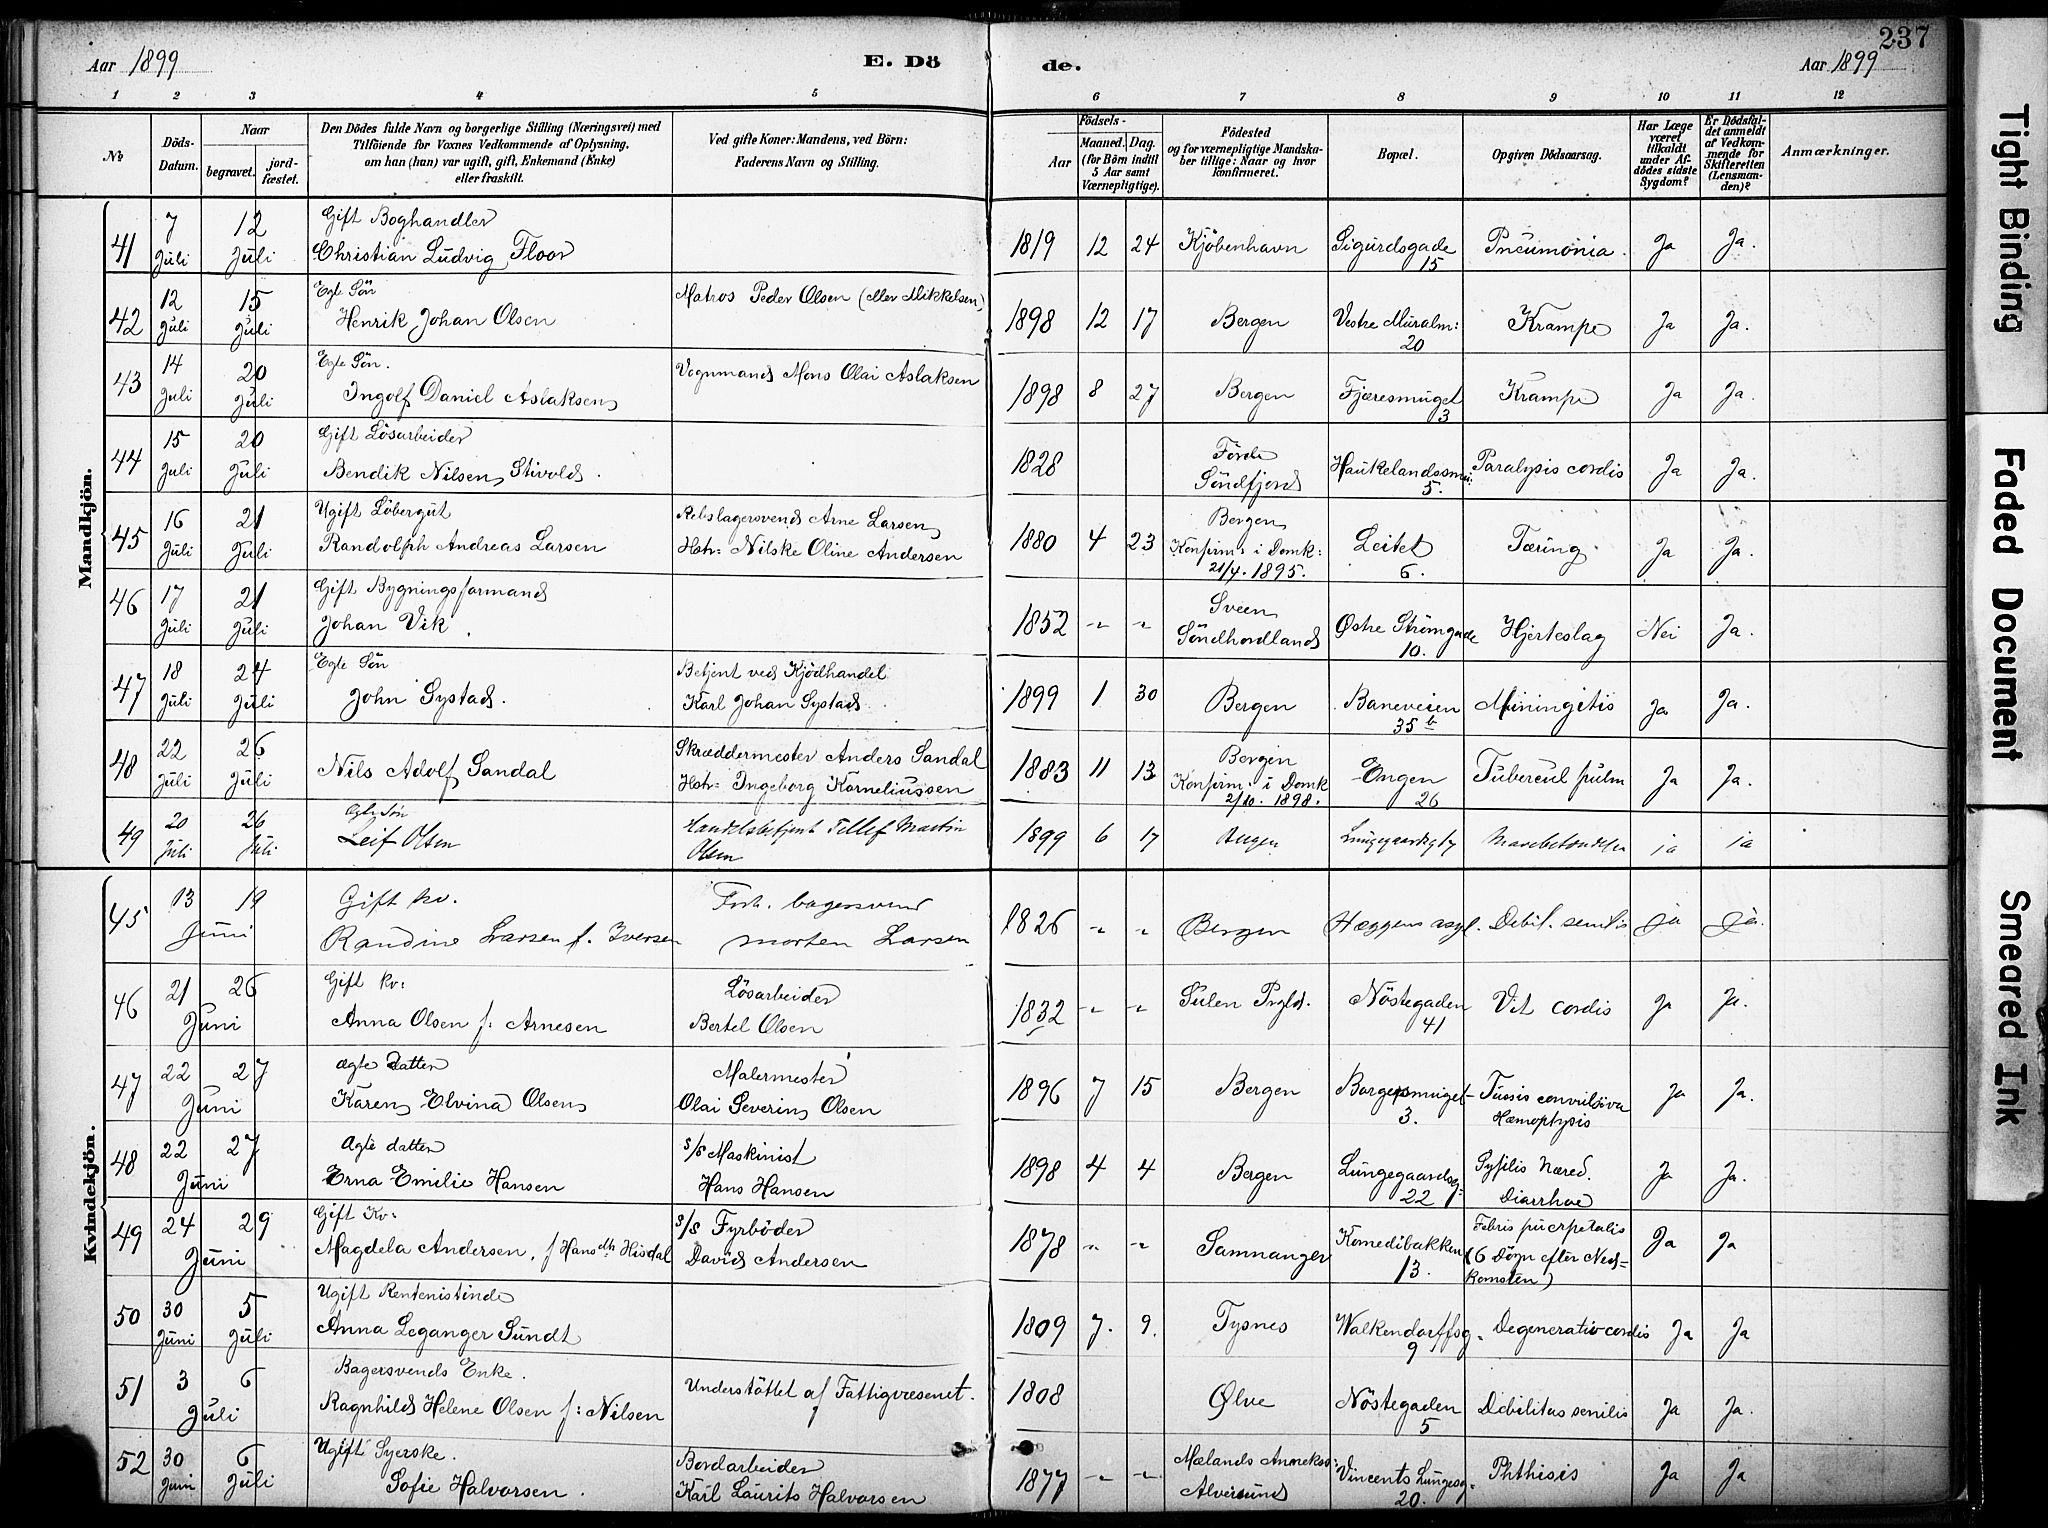 237
Aar 1899
E. Dö
de.
Aar 1899
1 2 3 4 5 6 7 8 9 10 11 12
№
Döds-
Datum.
Naar
begravet.
jord-
fæstet.
Den Dödes fulde Navn og borgerlige Stilling (Næringsvei) med
Tilföiende for Voxnes Vedkommende af Oplysning,
om han (hun) var ugift, gift, Enkemand (Enke)
eller fraskilt.
Ved gifte Koner: Mandens, ved Börn:
Faderens Navn og Stilling.
Födsels-
Aar
Maaned. Dag.
(for Börn indtil
5 Aar samt
Værnepligtige).
Födested
og for værnepligtige Mandska-
ber tillige: Naar og hvor
konfirmeret.
Bopæl.
Opgiven Dödsaarsag.
Har Læge
været
tilkaldt
under Af-
dödes sidste
Sygdom?
Er Dödsfal-
det anmeldt
af Vedkom-
mende for
Skifteretten
(Lensman-
den)?
Anmærkninger.
Mandkjön.
41 7 Juli 12 Juli Gift Boghandler
Christian Ludvig Floor 1819 12 24 Kjöbenhavn Sigurdsgade 15 Pneumonia. Ja Ja.
42 12 Juli 15 Juli Egte Sön
Henrik Johan Olsen Matros Peder Olsen (eller Mikkelsen) 1898 12 17 Bergen Vestre Muralm: 20 Krampe Ja Ja.
43 14 Juli 20 Juli Egte Sön.
Ingolf Daniel Aslaksen Vognmand Mons Olai Aslaksen 1898 8 27 Bergen Fjæresmuget 3 Krampe Ja Ja.
44 15 Juli 20 Juli Gift Lösarbeider
Bendik Nilsen Stivold. 1828 Förde
Söndfjord Haukelandssmu: 5. Paralysis cordis Ja Ja.
45 16 Juli 21 Juli Ugift Löbergut
Randolph Andreas Larsen Rebslagersvend Arne Larsen
Hstr: Nilske Oline Andersen 1880 4 23 Bergen
Konfirm: i Domk:
21/4. 1895. Leitet 6. Tæring. Ja Ja.
46 17 Juli 21 Juli Gift Bygningsformand
Johan Vik. 1852 " " Sveen
Söndhordland Østre Strömgade 10. Hjerteslag Nei Ja.
47 18 Juli 24 Juli Egte Sön
John Systad. Betjent ved Kjödhandel
Karl Johan Systad 1899 1 30 Bergen Baneveien 35 b Miningitis Ja Ja.
48 22 Juli 26 Juli Nils Adolf Sandal Skræddermester Anders Sandal
Hstr: Ingeborg Korneliussen 1883 11 13 Bergen
Konfirm: i Domk
2/10. 1898. Engen 26 Tubercul pulm Ja Ja.
49 20 Juli 26 Juli Egte Sön
Leif Olsen Handelsbetjent Tellef Martin
Olsen 1899 6 17 Bergen ja ja
Kvindekjön.
45 13 19 Juni Gift kv.
Randine Larsen f. Iversen Forh. bagersvend
Morten Larsen 1826 " " Bergen Hæggens asyl. Debil. senilis ja ja.
46 21 26 Juni Gift kv:
Anna Olsen f: Arnesen Lösarbeider
Bertel Olsen 1832 " " Sulen Prgld. Nöstegaden 41 Vit cordis Ja Ja.
47 22 27 Juni ægte Datter
Karen Elvina Olsen Malermester
Olai Severin Olsen 1896 7 15 Bergen Borgermuget 3. Tussis convulsiva
Hæmoptysis Ja Ja.
48 22 27 Juni Ægte datter
Erna Emilie Hansen s/s Maskinist
Hans Hansen 1898 4 4 Bergen Lungegaardsg: 22 Syfilis Næred.
Diarrhoe Ja Ja.
49 24 29 Juni Gift Kv:
Magdela Andersen, f Hansdtr Hisdal s/s Fyrböder
David Andersen 1878 " " Samnanger Komedibakken 13. Febris puerpetalis
(6 Dögn efter Ned=
komsten) Ja Ja
50 30 Juni 5 Juli Ugift Rentenistinde
Anna Leganger Sundt 1809 7. 9. Tysnes Walkendorffsg. 9 Degenerativ cordis Ja Ja
51 3 6 Juli Bagersvends Enke.
Ragnhild Helene Olsen f: Nilsen Understöttet af Fattigvæsenet. 1808 Ølve Nöstegaden 5 Debilitas senilis Ja Ja.
52 30 Juni 6 Juli Ugift Syerske.
Sofie Halvorsen. Bordarbeider
Karl Laurits Halvorsen 1877 " " Mælands Anneks:
Alversund Vincents Lungesg: 20. Phthisis Ja Ja
Tight Binding
Faded Document
Smeared Ink